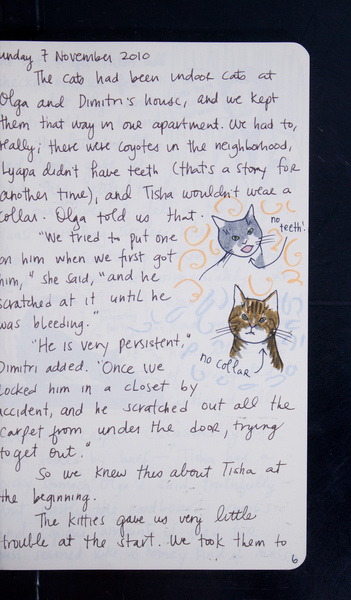 unday 7 November 2010
The cats had been indoor cats at
Olga and Dimitri's house, and we kept
them that way in our apartment. We had to,
really; there were coyotes in the neighborhood,
Lyapa didn't have teeth (that's a story for
another time), and Tisha wouldn't wear a
collar. Olga told us that.
no
teeth!
"We tried to put one
on him when we first got
him," she said, "and he
scratched at it until he
was bleeding."
"He is very persistent,"
Dimitri added. "Once we
locked him in a closet by
accident, and he scratched out all the
carpet from under the door, trying
to get out."
no collar
So we knew this about Tisha at
the beginning.
The kitties gave us very little
trouble at the start. We took them to
6